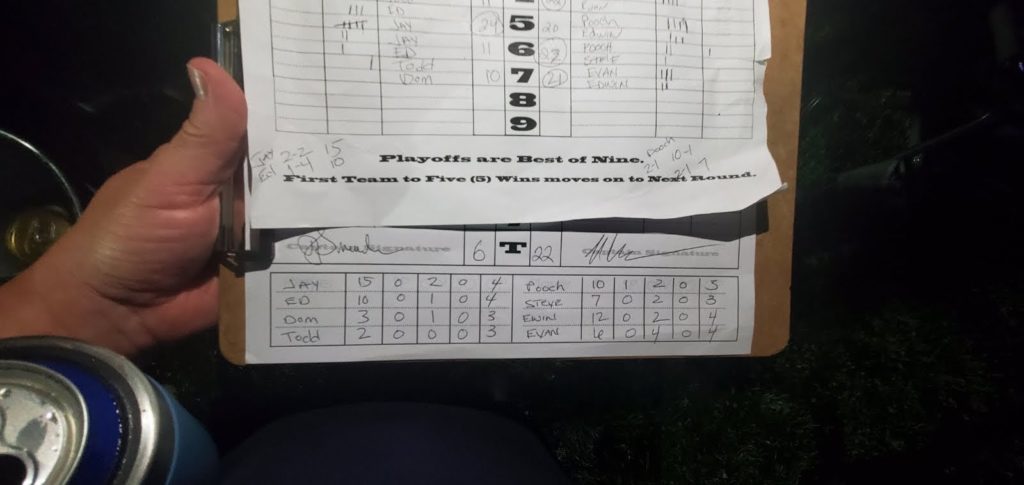 III ED 11 Evan
JAY 24 5 20 Pooch
II JAY Edwin III
I ED 11 6 22 Pooch II I
I Todd Steve I
Dom 10 7 21 EVAN III
EDWIN II
8
9
Jay 2-2 15 Pooch
Ed 1-4 10 2-1 10-1
Playoffs are Best of Nine. 2-1 7
First Team to Five (5) Wins moves on to Next Round.
Signature 6 T 22 Captain Signature
JAY 15 0 2 0 4 Pooch 10 1 2 0 5
ED 10 0 1 0 4 STEVE 7 0 2 0 3
Dom 3 0 1 0 3 EWIN 12 0 2 0 4
Todd 2 0 0 0 3 EVAN 6 0 4 0 4